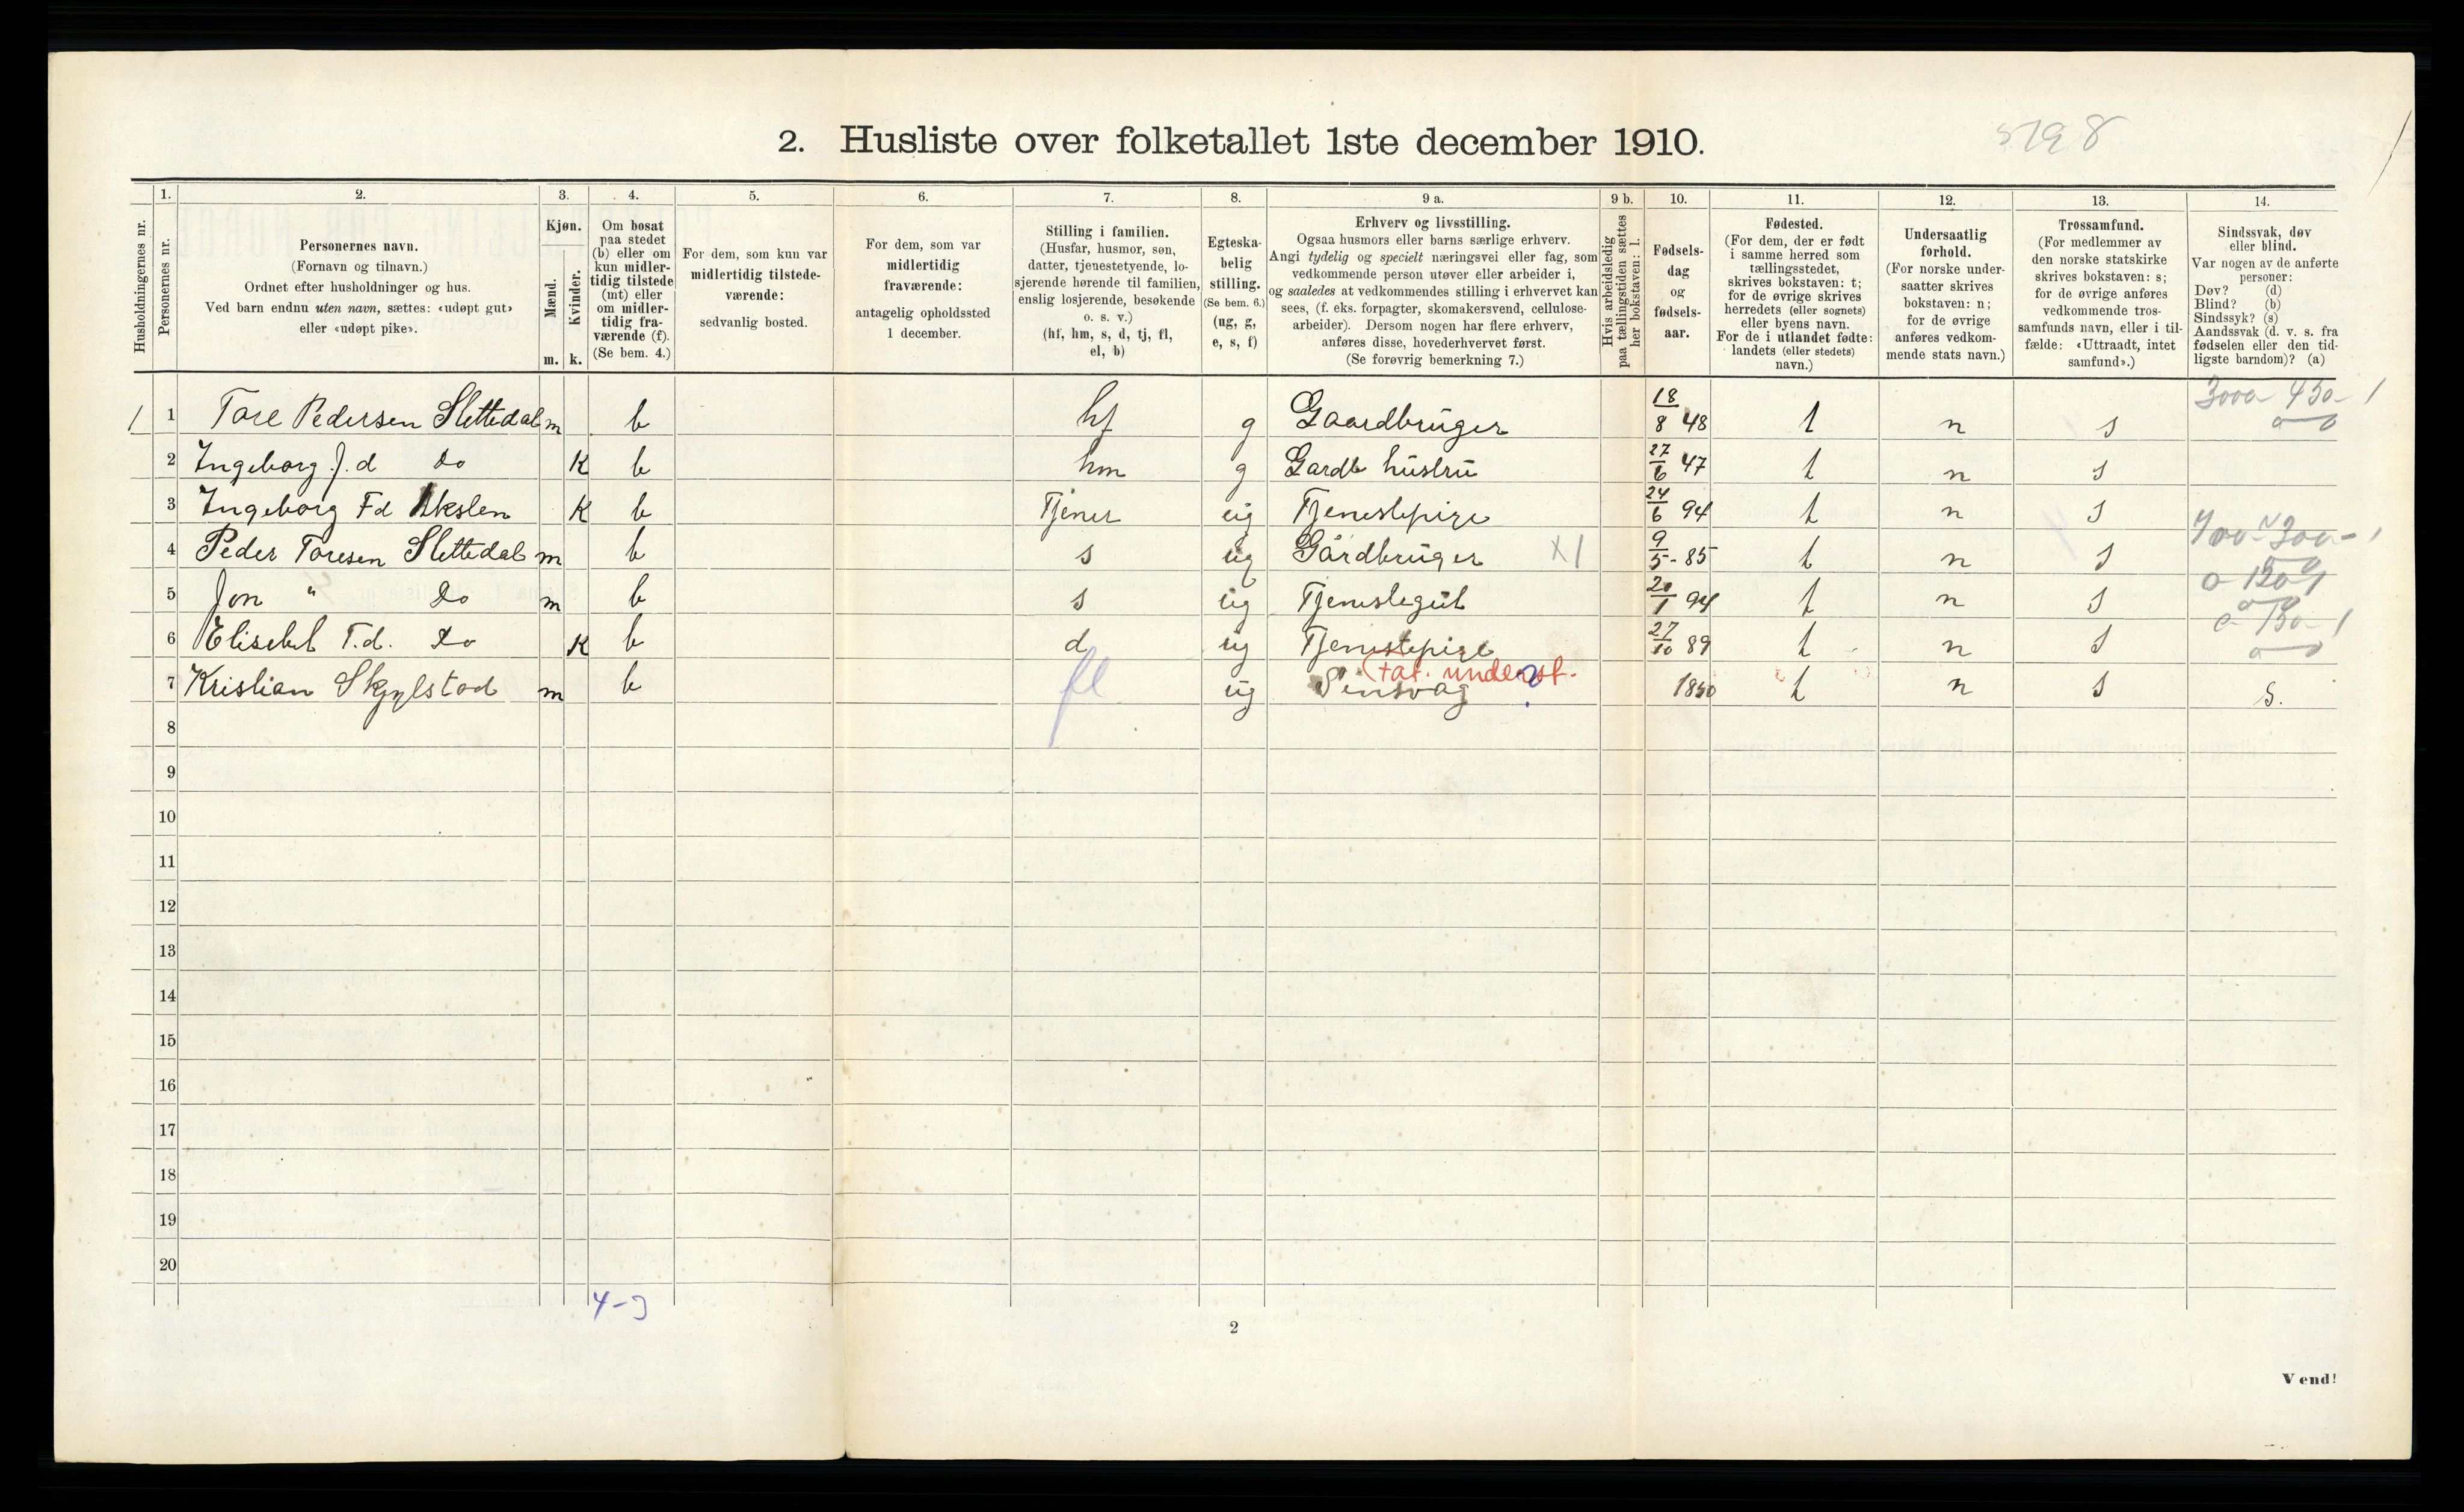 2. Husliste over folketallet 1ste december 1910.
5198
Husholdningernes nr.
1.
Personernes nr.
2.
Personernes navn.
(Fornavn og tilnavn.)
Ordnet efter husholdninger og hus.
Ved barn endnu uten navn, sættes: «udøpt gut»
eller «udøpt pike».
3.
Kjøn.
Mænd.
Kvinder.
m. k.
4.
Om bosat
paa stedet
(b) eller om
kun midler-
tidig tilstede
(mt) eller
om midler-
tidig fra-
værende (f).
(Se bem. 4.)
5.
For dem, som kun var
midlertidig tilstede-
værende:
sedvanlig bosted.
6.
For dem, som var
midlertidig
fraværende:
antagelig opholdssted
1 december.
7.
Stilling i familien.
(Husfar, husmor, søn,
datter, tjenestetyende, lo-
sjerende hørende til familien,
enslig losjerende, besøkende
o. s. v.)
(hf, hm, s, d, tj, fl,
el, b)
8.
Egteska-
belig
stilling.
(Se bem. 6.)
(ug, g,
e, s, f)
9 a.
Erhverv og livsstilling.
Ogsaa husmors eller barns særlige erhverv.
Angi tydelig og specielt næringsvei eller fag, som
vedkommende person utøver eller arbeider i,
og saaledes at vedkommendes stilling i erhvervet kan
sees, (f. eks. forpagter, skomakersvend, cellulose-
arbeider). Dersom nogen har flere erhverv,
anføres disse, hovederhvervet først.
(Se forøvrig bemerkning 7.)
9 b.
Hvis arbeidsledig
paa tællingstiden sættes
her bokstaven: l.
10.
Fødsels-
dag
og
fødsels-
aar.
11.
Fødested.
(For dem, der er født
i samme herred som
tællingsstedet,
skrives bokstaven: t;
for de øvrige skrives
herredets (eller sognets)
eller byens navn.
For de i utlandet fødte:
landets (eller stedets)
navn.)
12.
Undersaatlig
forhold.
(For norske under-
saatter skrives
bokstaven: n;
for de øvrige
anføres vedkom-
mende stats navn.)
13.
Trossamfund.
(For medlemmer av
den norske statskirke
skrives bokstaven: s;
for de øvrige anføres
vedkommende tros-
samfunds navn, eller i til-
fælde: «Uttraadt, intet
samfund».)
14.
Sindssvak, døv
eller blind.
Var nogen av de anførte
personer:
Døv? (d)
Blind? (b)
Sindssyk? (s)
Aandssvak (d. v. s. fra
fødselen eller den tid-
ligste barndom)? (a)
1 1 Tore Pedersen Slettedal m b hf g Gaardbruger 18/8 48 t n s 3000 450 - 1
2 Ingeborg J. d Do K b hm g Gardb hustru 27/6 47 t n s
3 Ingeborg Fd Akslen K b Tjener ug Tjenestpige 24/6 94 t n s
4 Peder Toresen Slettedal m b s ug Gårdbruger X1 9/5 - 85 t n s 400 - 300 - 1
5 Jon " Do m b s ug Tjenstegut 20/1 94 t n s 0 120 1
6 Elisebet T.d. Do K b d ug Tjenstepige 27/10 89 t n s 0 130 - 1
7 Kristian Skjylstad m b fl ug Sinsvag (fat. underst. ? 1850 t n s S.
8
9
10
11
12
13
14
15
16
17
18
19
20
4-3
2
Vend!